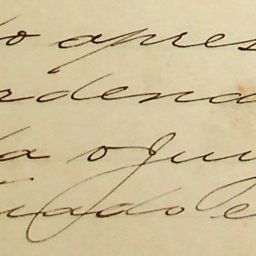 do apres
rdena
da o Jui
iado e